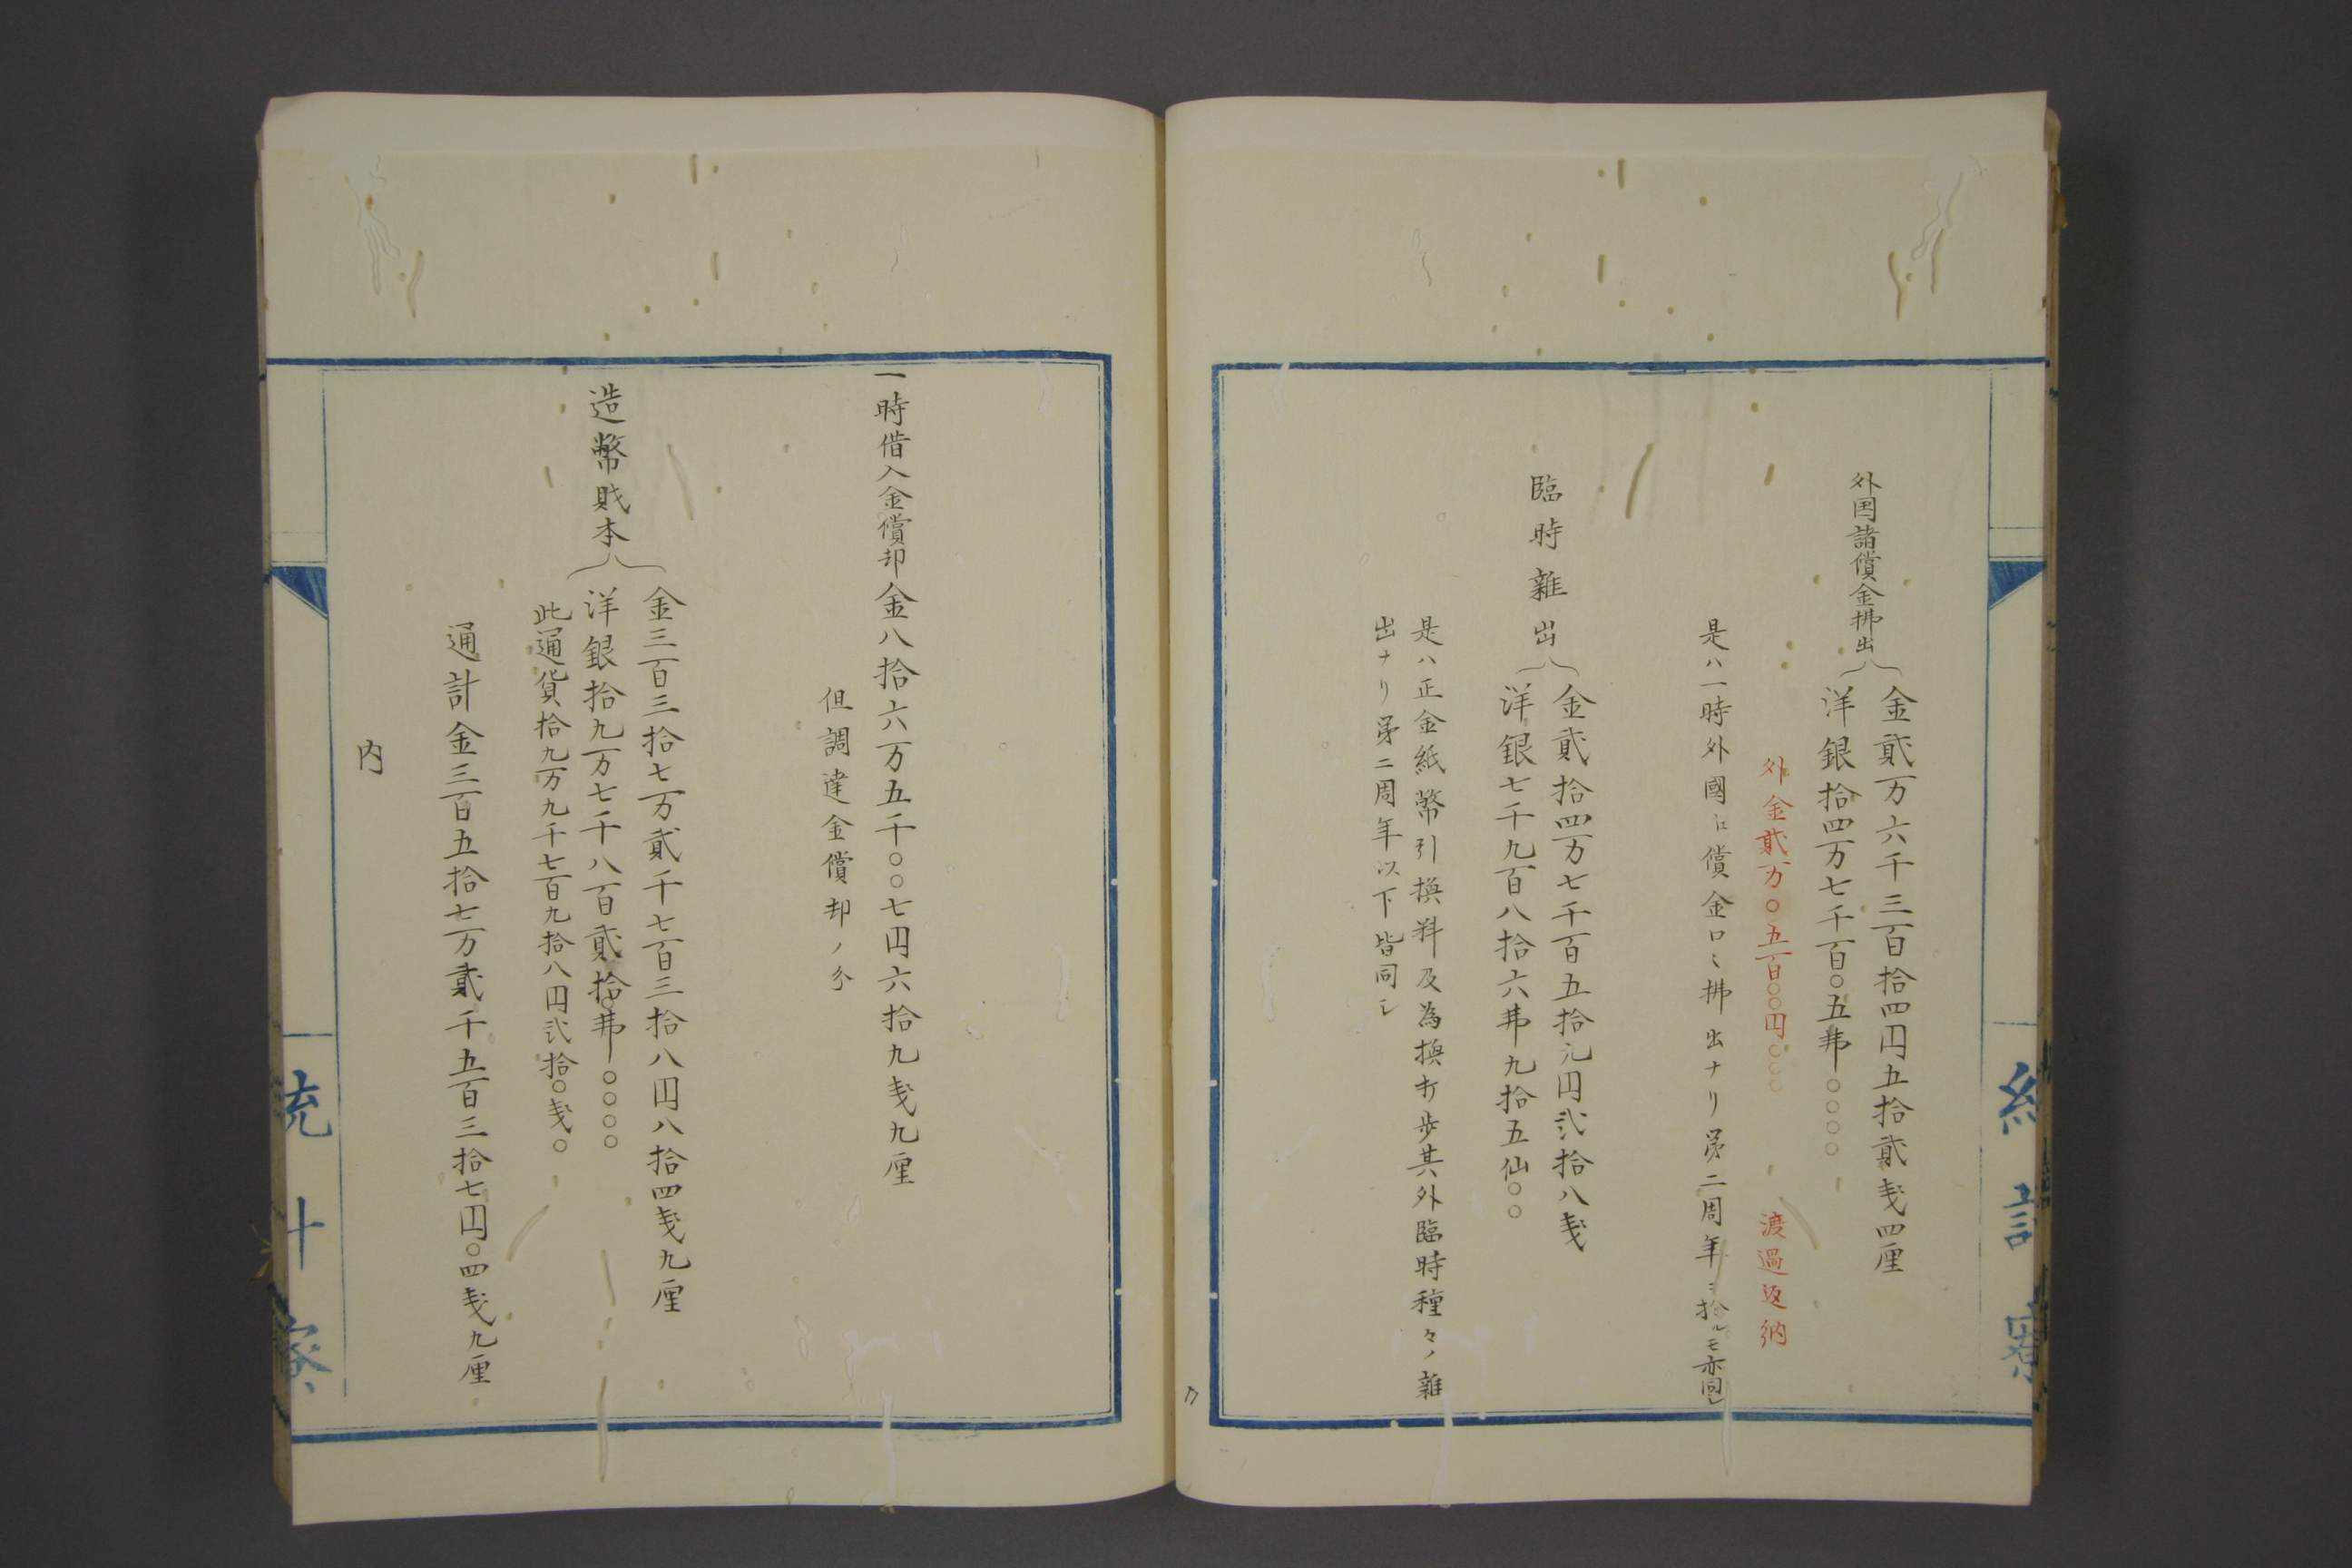 外国諸償金拂出
金貳万六千三百拾四円五拾貳戔四厘
洋銀拾四万七千百〇五弗〇〇〇〇
外金貳万〇五百〇〇円〇〇〇 渡過返納
是ハ一時外國ヘ償金口々拂出ナリ第二周年ニ於ルモ亦同シ
臨時雜出
金貳拾四万七千百五拾九円貳拾八戔
洋銀七千九百八拾六弗九拾五仙〇〇
是ハ正金紙幣引換料及為換打歩其外臨時種々ノ雜
出ナリ第二周年以下皆同シ
一時借入金償却金八拾六万五千〇〇七円六拾九戔九厘
但調達金償却ノ分
造幣貲本
金三百三拾七万貳千七百三拾八円八拾四戔九厘
洋銀拾九万七千八百貳拾〇弗〇〇〇〇
此通貨拾九万九千七百九拾八円弐拾〇戔〇
通計金三百五拾七万貳千五百三拾七円〇四戔九厘
内
統計寮